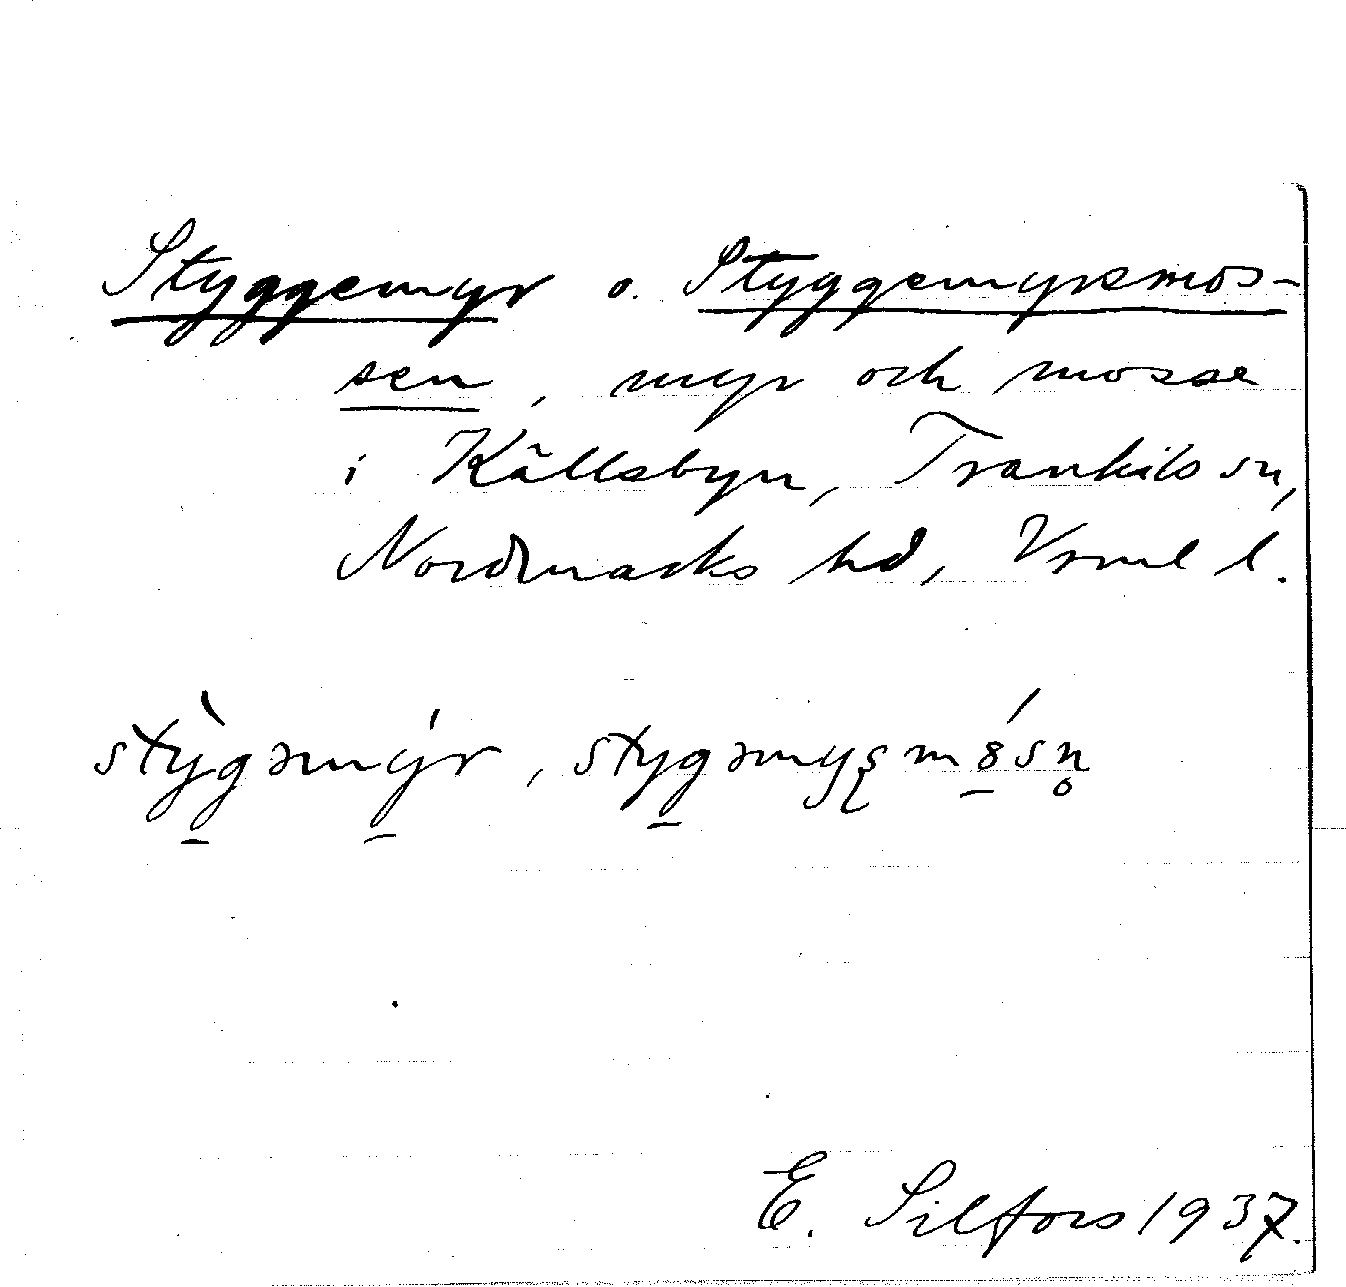 Styggemyr o. Styggemyrsmos-
sen, myr och mosse
i Källsbyn, Trankils sn,
Nordmarks hd, Vrml l.
stỳgəmýr, stygəmyʂmósn̥
E. Silfors 1937.